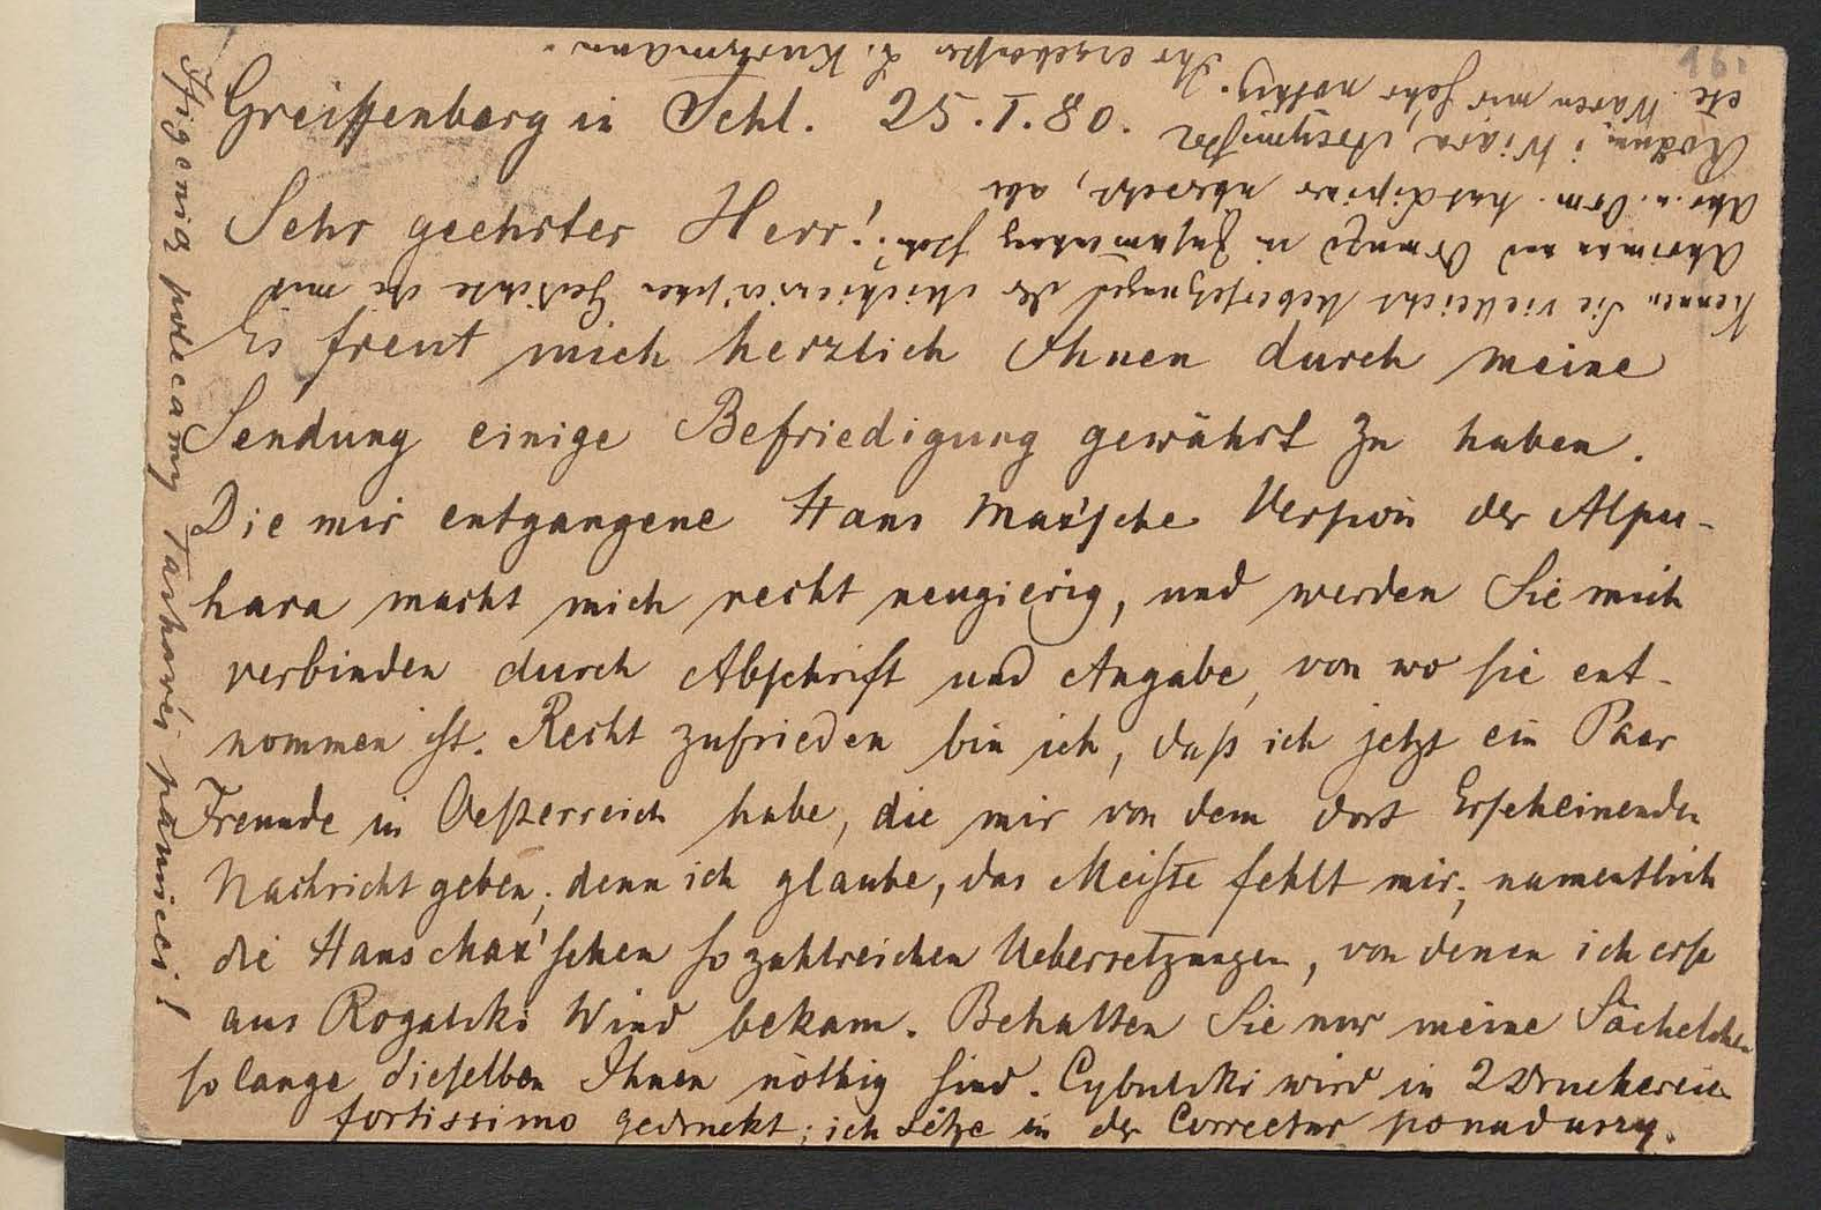 Greiffenberg in Schl. 25.I.80.
Sehr geehrter Herr!
Es freut mich herzlich Ihnen durch meine
Sendung einige Befriedigung gewährt zu haben.
Die mir entgangene Hans Max'sche Version der Alpu-
hara macht mich recht neugierig, und werden Sie mich
verbinden durch Abschrift und Angabe, von wo sie ent-
nommen ist. Recht zufrieden bin ich, daß ich jetzt ein Paar
Freunde in Oesterreich habe, die mir von dem dort Erscheinenden
Nachricht geben; denn ich glaube, das Meiste fehlt mir; namentlich
die Hans Max'schen so zahlreichen Uebersetzungen, von denen ich erst
aus Rogalski Wind bekam. Behalten Sie nur meine Sächelchen
so lange dieselben Ihnen nöthig sind. Cybulski wird in 2 Druckereien
fortissimo gedruckt; ich sitze in der Correctur ponad uszy.
Kennen Sie vielleicht Uebersetzungen der Mickiewicz'schen Gedichte die mit
Ahriman und Ormuzd in Zusammenhang stehn?
Ahr. u. Orm. hat Lipiner übersetzt, aber
Rozum i Wiara, Arcymistrz
etc. Waren mir sehr nöthig.
Ihr ergebenster L. Kurtzmann.
Ifigenią polecamy Pańskiej pamięci!
16.